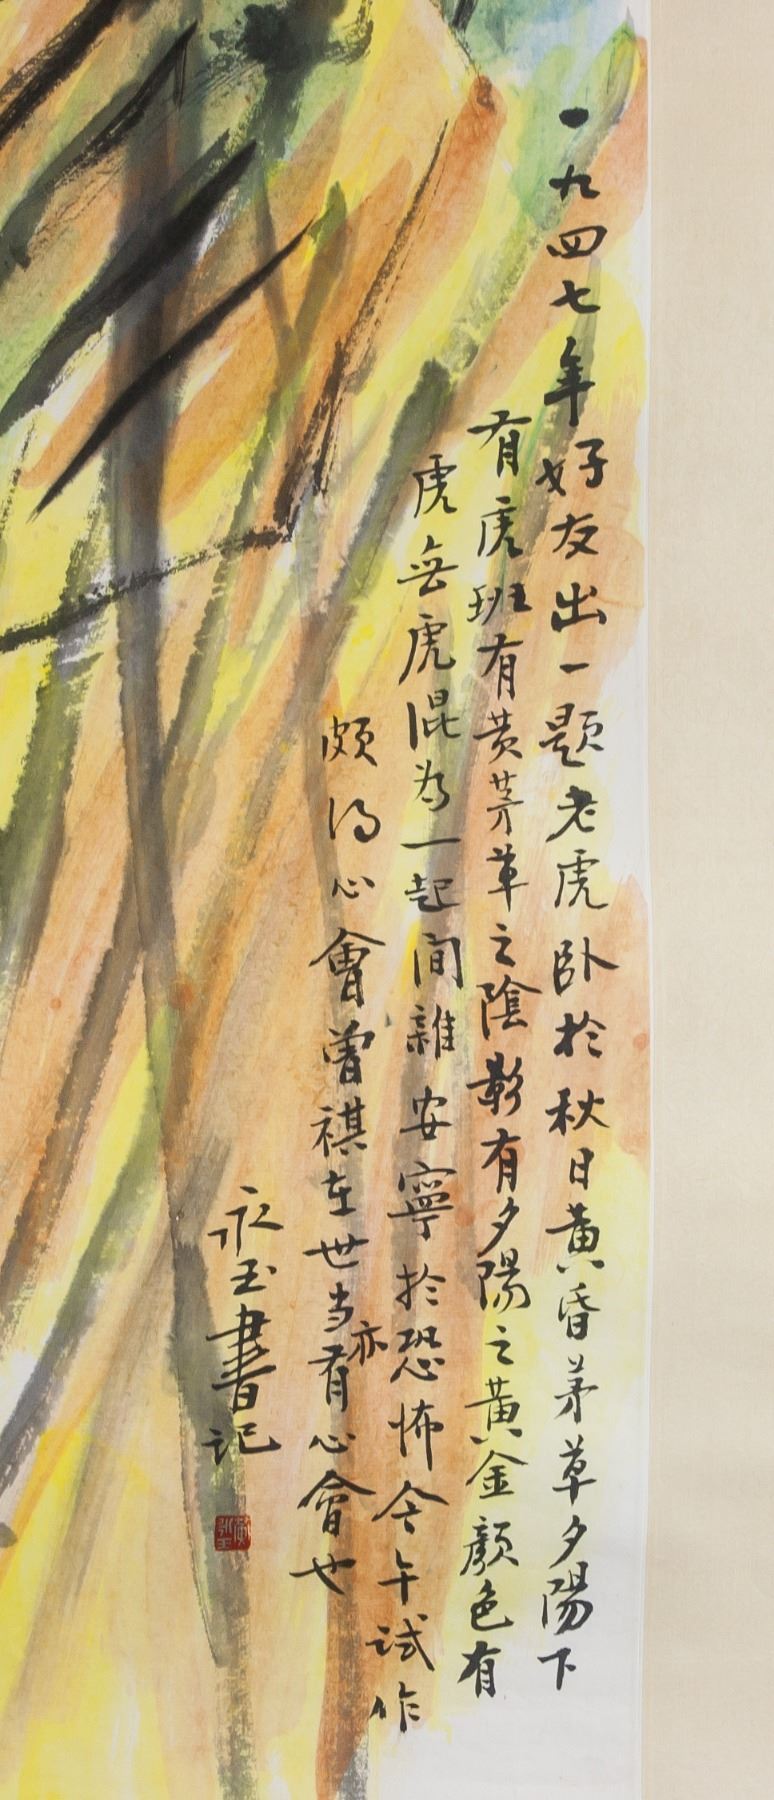 一九四七年好友出一题老虎卧於秋日黄昏茅草夕陽下
有虎班有黄芳草之陰影有夕陽之黄金顏色有
虎無虎混为一起间雜安寧於恐怖今午试作
颇得心會曾祺在世当亦有心會也
永玉書记
黄永玉